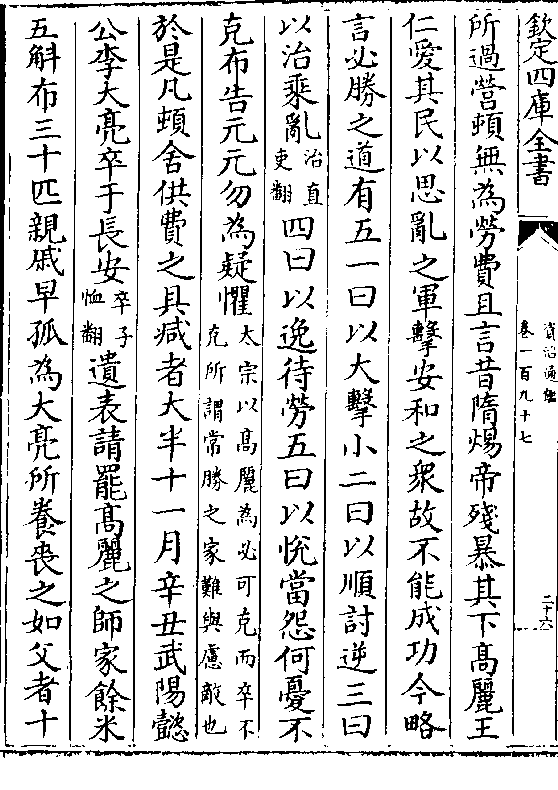 欽定四庫全書
資治通鑑
卷一百九十七
二十六
所過營頓無為勞費且言昔隋煬帝殘暴其下髙麗王
仁愛其民以思亂之軍擊安和之衆故不能成功今略
言必勝之道有五一曰以大擊小二曰以順討逆三曰
以治乘亂治直吏翻四曰以逸待勞五曰以悅當怨何憂不
克布告元元勿為疑懼太宗以髙麗為必可克而卒不克所謂常勝之家難與慮敵也
於是凡頓舍供費之具減者大半十一月辛丑武陽懿
公李大亮卒于長安卒子恤翻遺表請罷髙麗之師家餘米
五斛布三十匹親戚早孤為大亮所養喪之如父者十